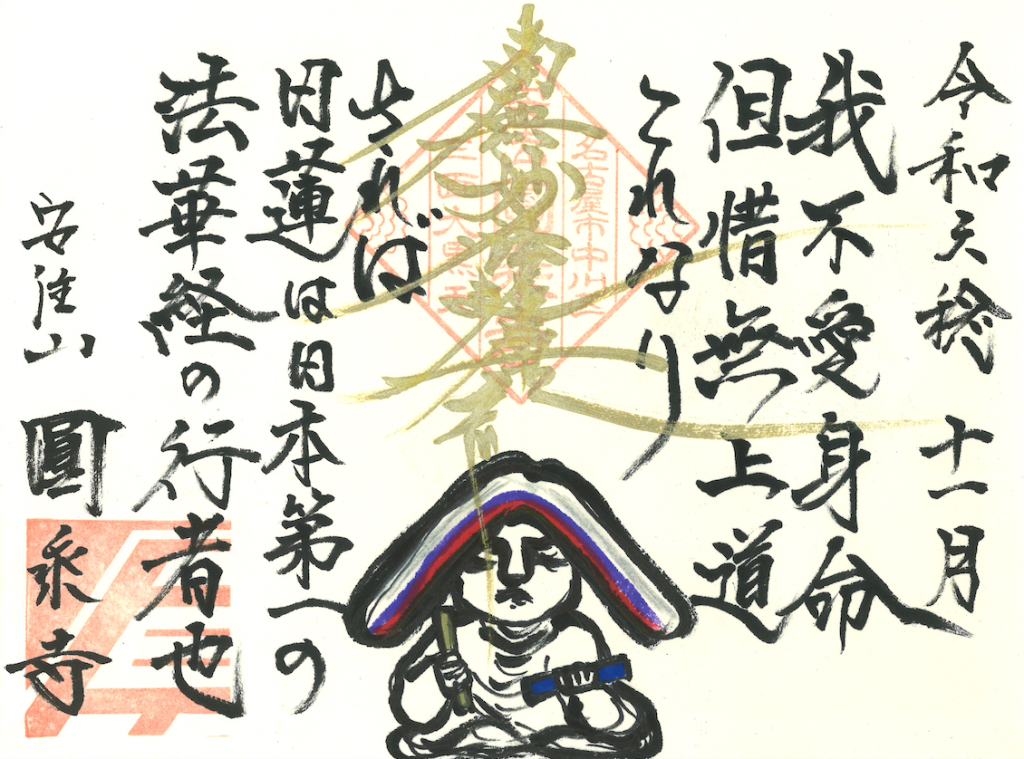 令和
十一月
我不愛身命
但惜無上道
これなり
南無妙法蓮華経
名古屋市中川区
三面大黒天
されば
日蓮は日本第一の
法華経の行者也
安住山